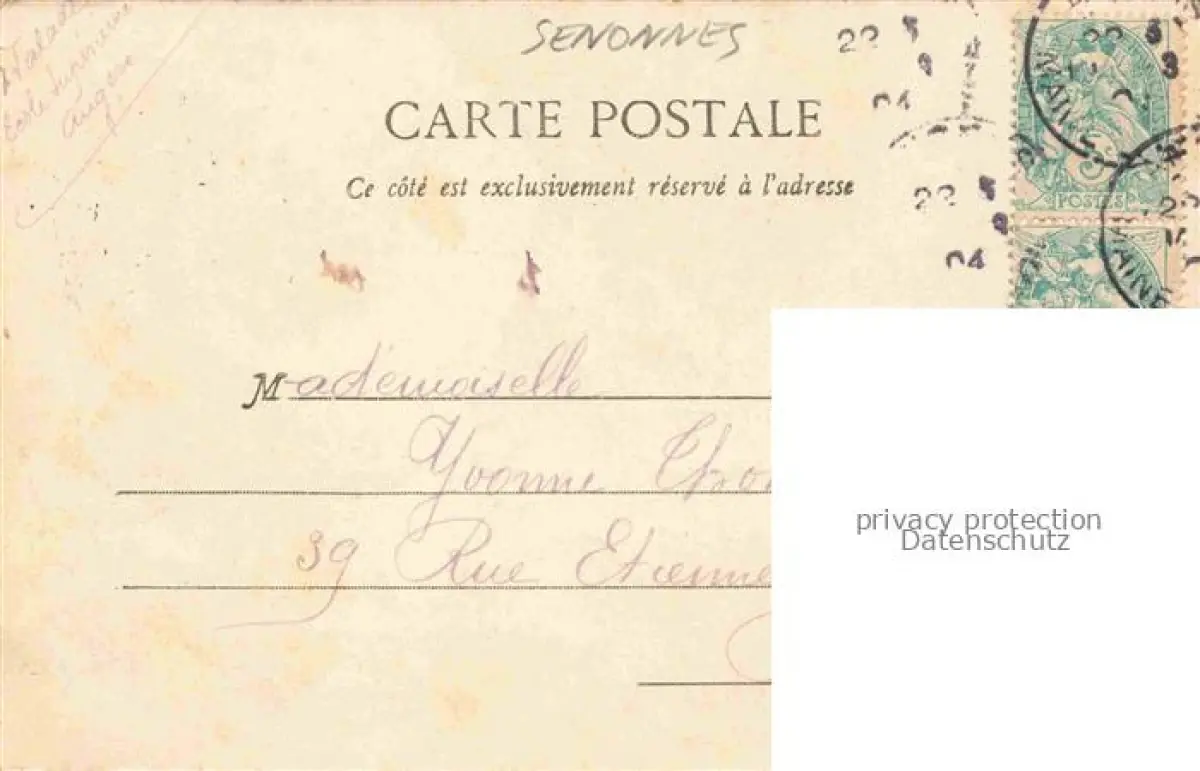 SENONNES
Ecole Supérieure
Angers
CARTE POSTALE
Ce côté est exclusivement réservé à l'adresse
22 5
04
22 5
04
5
POSTES
MAINE
Mademoiselle
Yvonne
39 Rue Etienne
privacy protection
Datenschutz